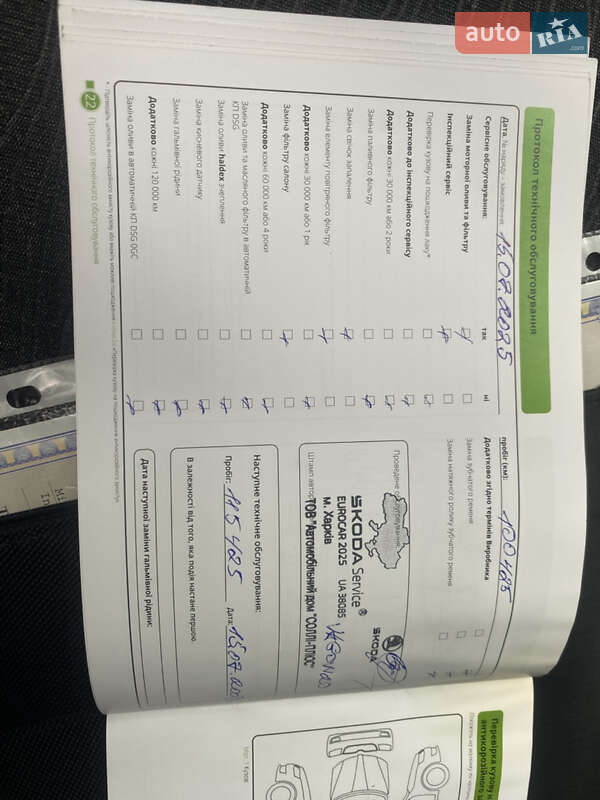 auto RIA.com
Протокол технічного обслуговування
Дата, № наряду – замовлення: 15.07.2025
Сервісне обслуговування: так ні
Заміна моторної оливи та фільтру
Інспекційний сервіс
Перевірка кузову на пошкодження лаку*
Додатково до інспекційного сервісу
Додатково кожні 30 000 км або 2 роки
Заміна паливного фільтру
Заміна свічок запалення
Заміна елементу повітряного фільтру
Додатково кожні 30 000 км або 1 рік
Заміна фільтру салону
Додатково кожні 60 000 км або 4 роки
Заміна оливи та масляного фільтру в автоматичній
КП DSG
Заміна оливи haldex зчеплення
Заміна кисневого датчику
Заміна гальмівної рідини
Додатково кожні 120 000 км
Заміна оливи в автоматичній КП DSG 0GC
22 Протокол технічного обслуговування
пробіг (км): 100485
Додатково згідно термінів Виробника
Заміна зубчатого ремена
Заміна натяжного ролику зубчатого ремена
Проведене обслуговування
ŠKODA Service®
ŠKODA
EUROCAR 2025 UA 38085
м. Харків
ТОВ "Автомобільний дом "СОЛЛІ-ПЛЮС"
Штамп
Наступне технічне обслуговування:
Пробіг: 115 485 Дата:
В залежності від того, яка подія настане першою.
Дата наступної заміни гальмівної рідини:
Перевірка кузову
антикорозійного